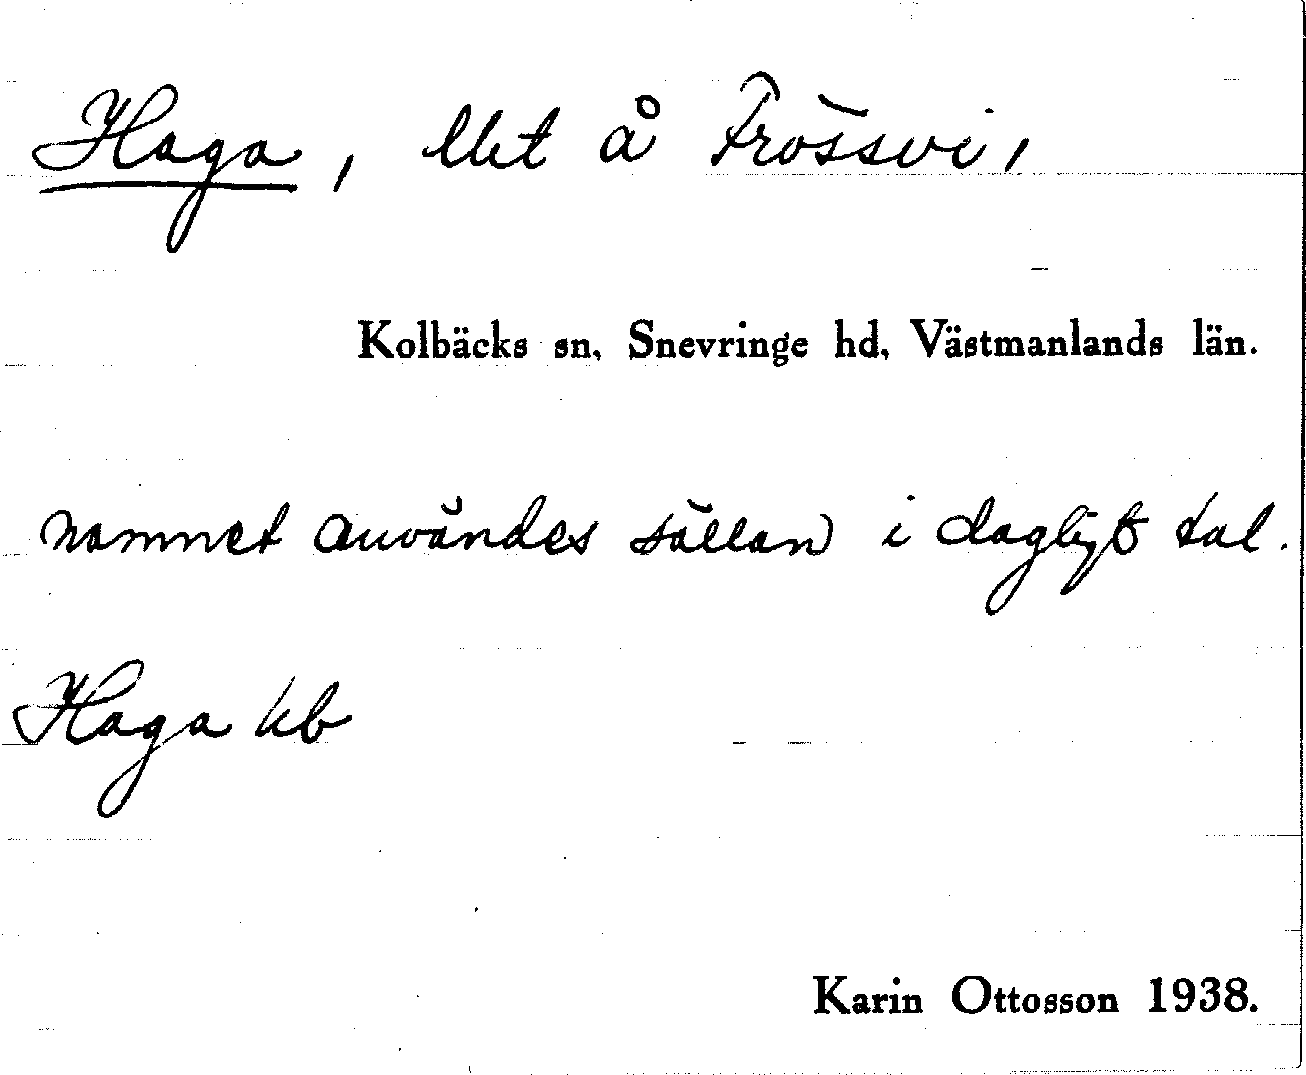 Haga, llet å Frössvi,
Kolbäcks sn, Snevringe hd, Västmanlands län.
namnet användes sällan i dagligt tal.
Haga kb
Karin Ottosson 1938.